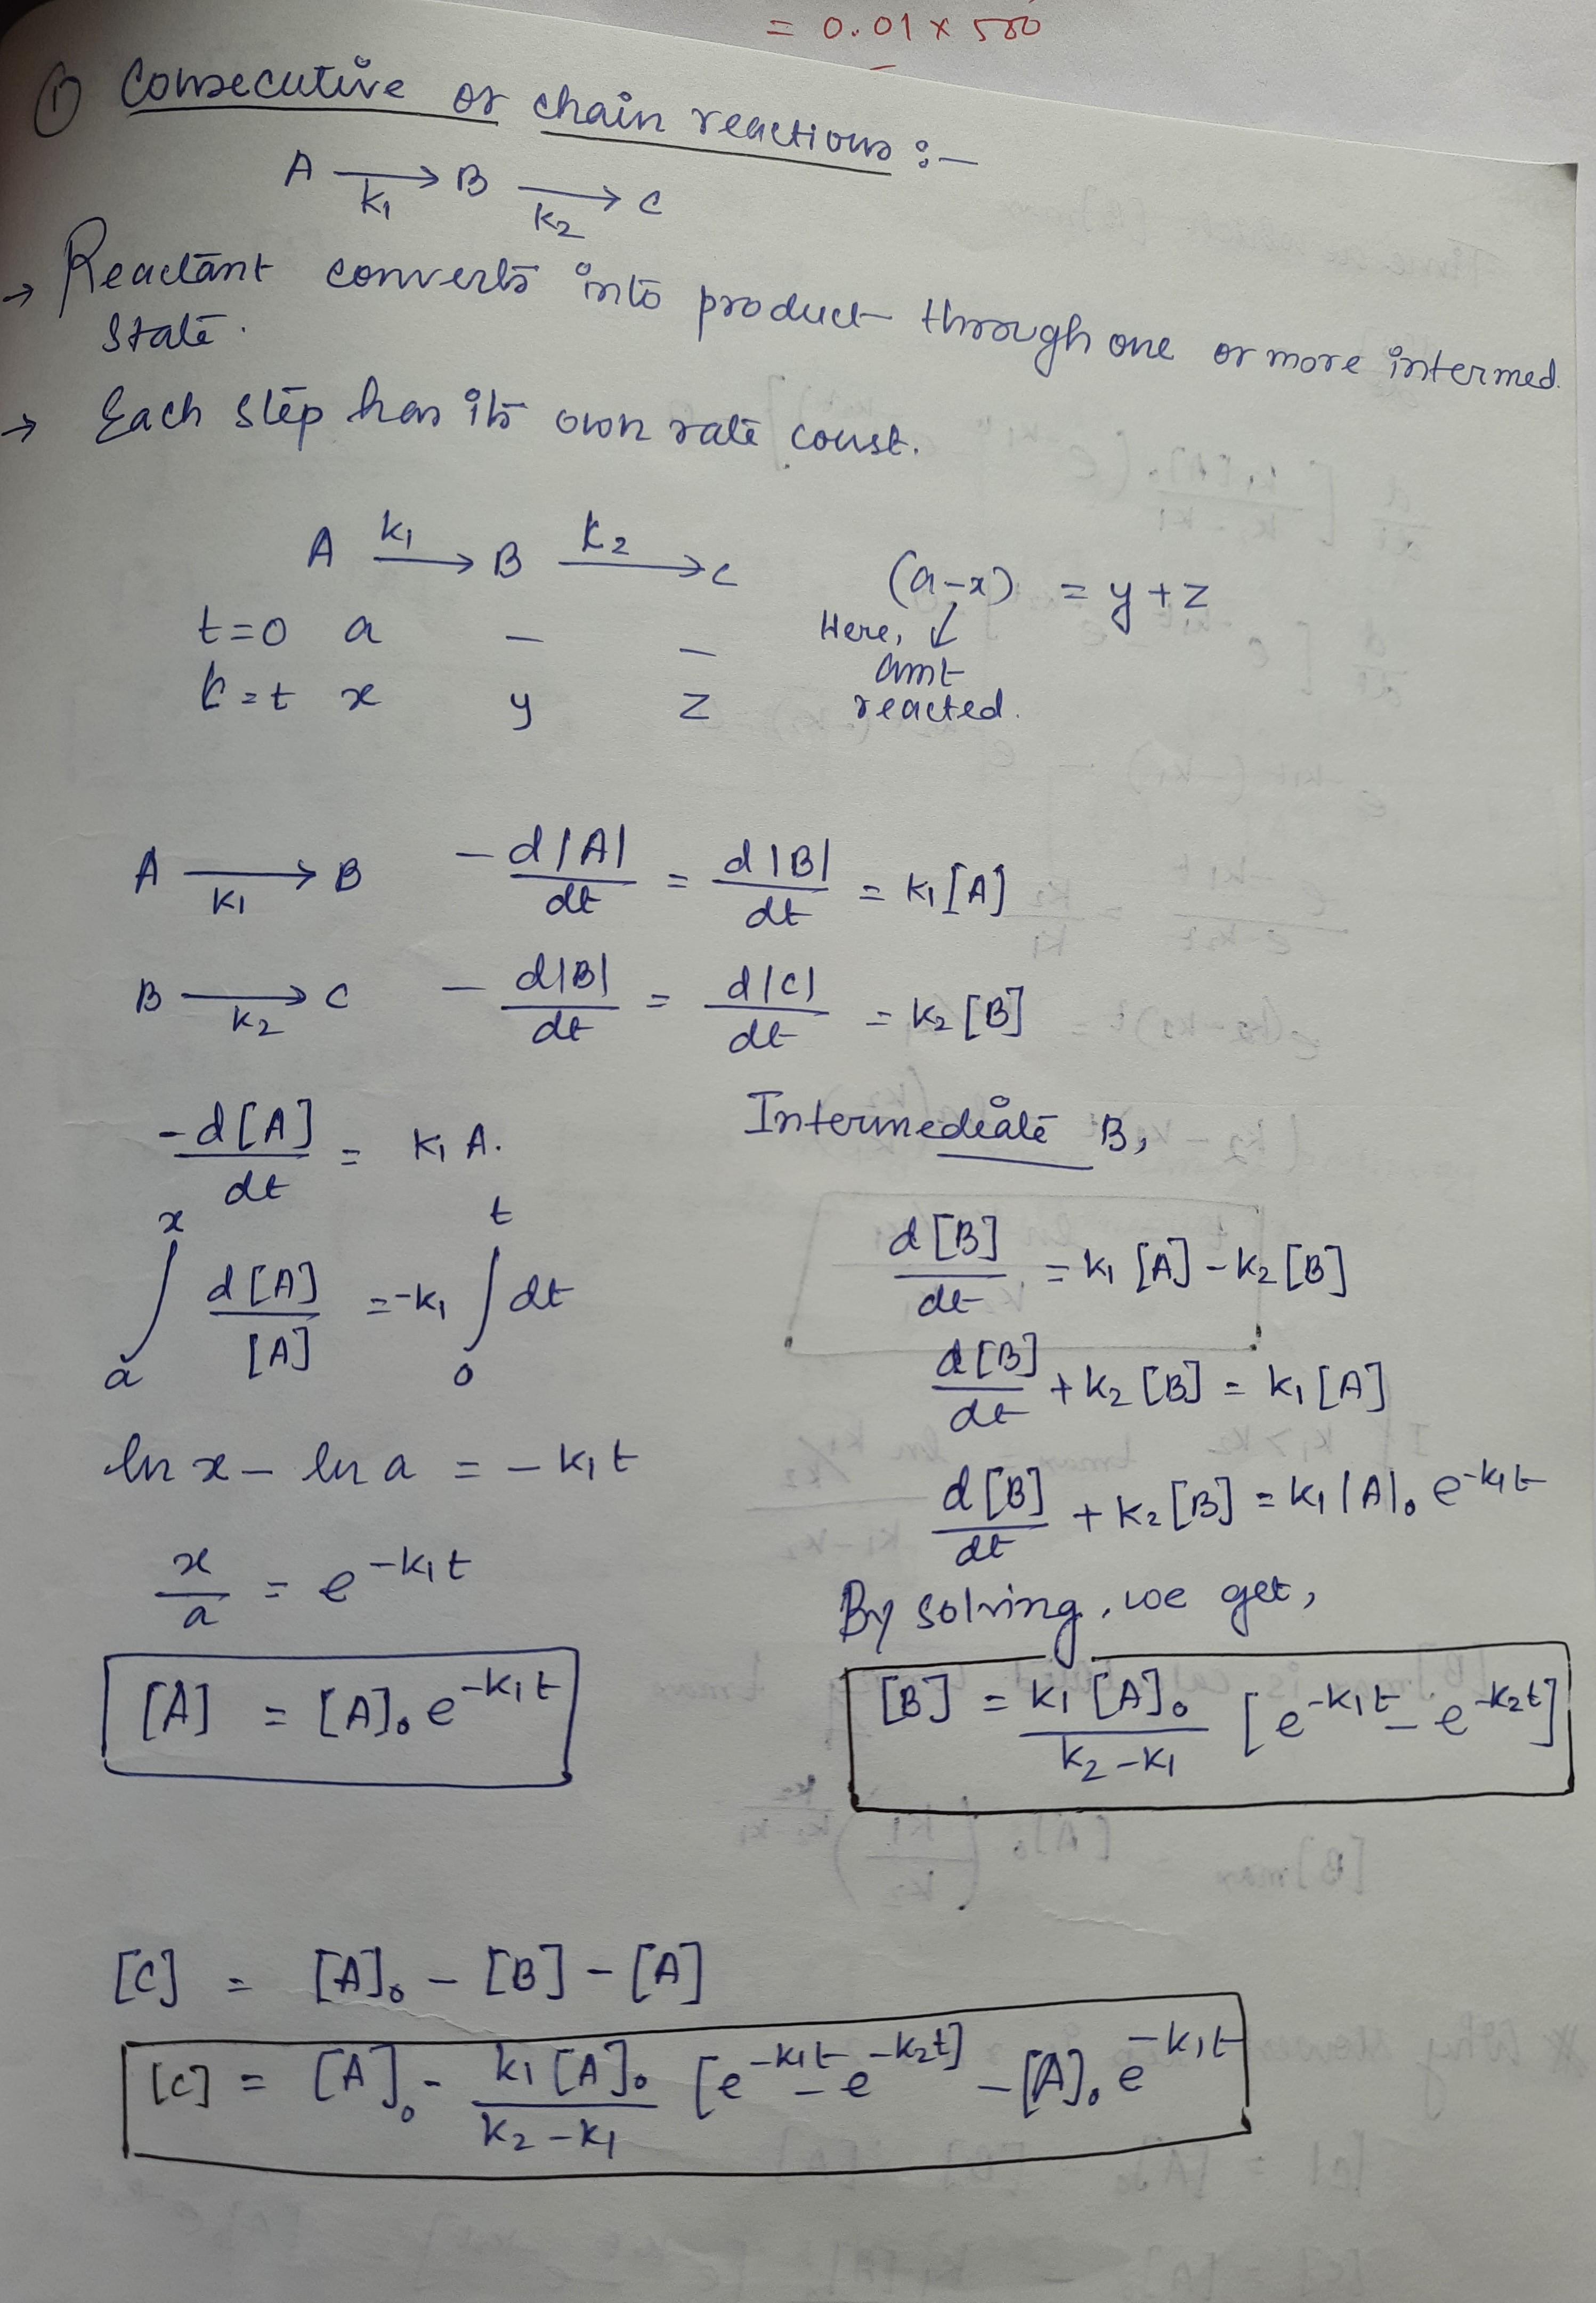 = 0.01 × 500
① Consecutive or chain reactions :-
A →k₁ B →k₂ C
→ Reactant converts into product through one or more intermed.
state.
→ Each step has its own rate const.
A k₁→ B k₂→ C (a-x) = y+z
t=0 a – – Here, ↓
amt
t=t x y z reacted.
A →k₁ B -d|A|/dt = d|B|/dt = k₁[A]
B →k₂ C -d|B|/dt = d|C|/dt = k₂[B]
-d[A]/dt = k₁ A.
∫ₐˣ d[A]/[A] = -k₁ ∫₀ᵗ dt
ln x - ln a = -k₁t
x/a = e^-k₁t
[A] = [A]₀ e^-k₁t
Intermediate B,
d[B]/dt = k₁[A] - k₂[B]
d[B]/dt + k₂[B] = k₁[A]
d[B]/dt + k₂[B] = k₁|A|₀ e^-k₁t
By solving, we get,
[B] = k₁[A]₀/k₂-k₁ [e^-k₁t - e^-k₂t]
[C] = [A]₀ - [B] - [A]
[C] = [A]₀ - k₁[A]₀/k₂-k₁ [e^-k₁t - e^-k₂t] - [A]₀ e^-k₁t